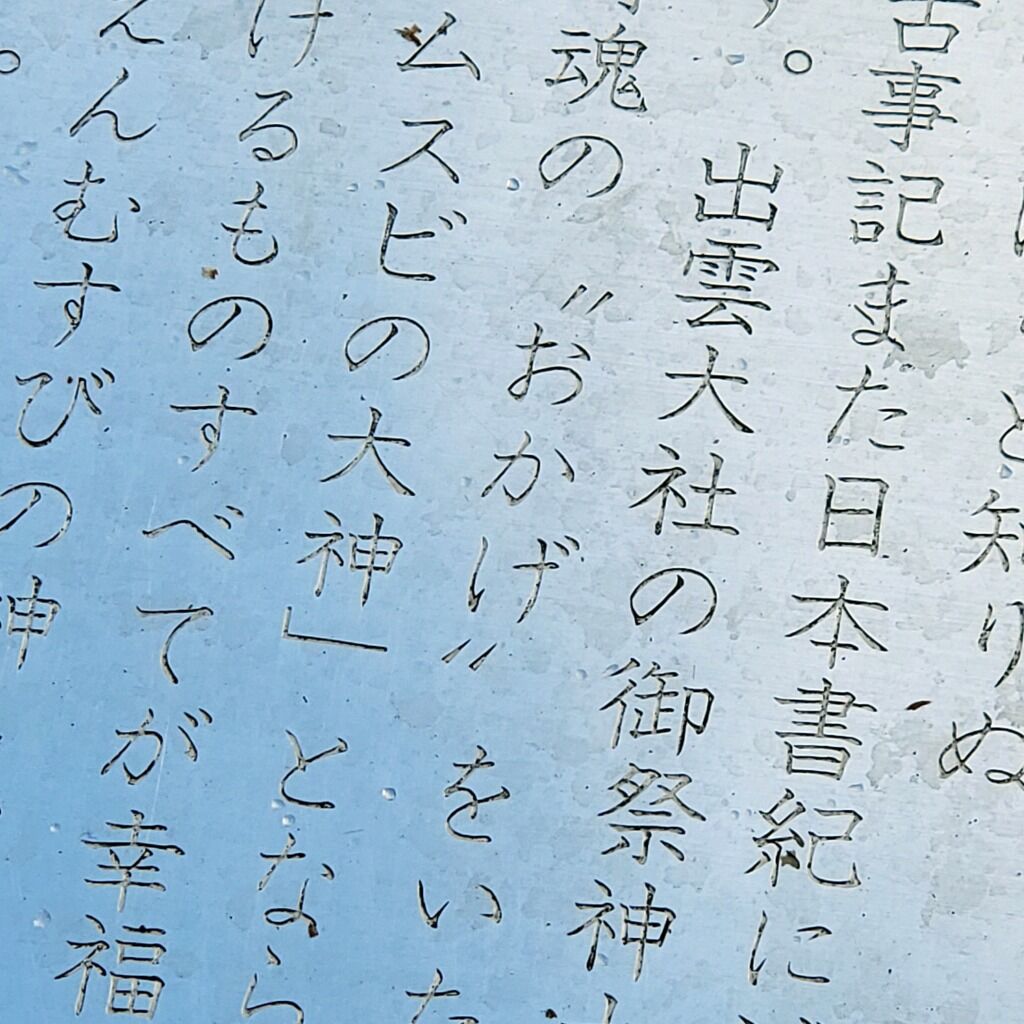 と知りぬ
古事記また日本書紀に
す。
出雲大社の御祭神
魂の〝おかげ〟をいた
ムスビの大神」となら
けるものすべてが幸福
えんむすびの神
。